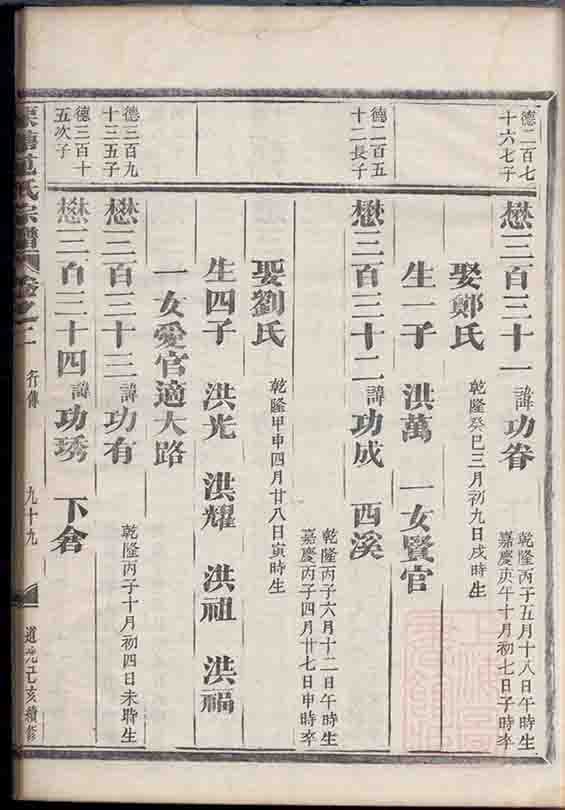 德二百七
十六七子
懋三百三十一 諱功眷
乾隆丙子五月十八日午時生
嘉慶庚午十月初七日子時卒
娶鄭氏
乾隆癸巳三月初九日戌時生
生一子 洪萬 一女賢官
德二百五
十二長子
懋三百三十二 諱功成 西溪
乾隆丙子六月十二日午時生
嘉慶丙子四月廿七日申時卒
娶劉氏
乾隆甲申四月廿八日寅時生
生四子 洪光 洪耀 洪祖 洪福
一女愛官適大路
德三百九
十三五子
懋三百三十三 諱功有
乾隆丙子十月初四日未時生
德三百十
五次子
懋三百三十四 諱功琇 下倉
范氏宗譜 卷之二 行傳 九十九 道光己亥續修